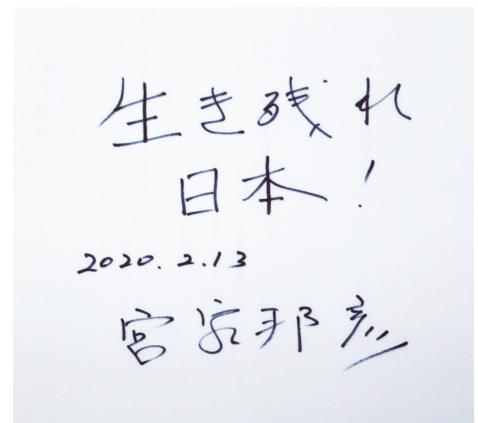 生き残れ
日本!
2020.2.13
宮家邦彦